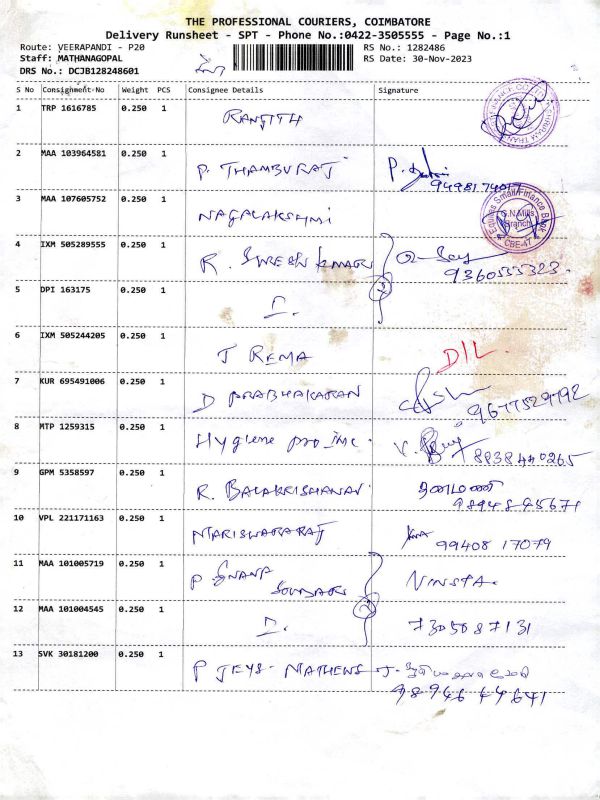 THE PROFESSIONAL COURIERS, COIMBATORE
Delivery Runsheet - SPT - Phone No.:0422-3505555 - Page No.:1
Route: VEERAPANDI - P20 RS No.: 1282486
Staff: MATHANAGOPAL RS Date: 30-Nov-2023
DRS No.: DCJB128248601
S No Consignment-No Weight PCS Consignee Details Signature
1 TRP 1616785 0.250 1 RANJITH
2 MAA 103964581 0.250 1 P. THAMBURAJ
9498174017
3 MAA 107605752 0.250 1 NAGALAKSHMI
Equitas Small Finance Bank
G.N.Mills
Branch
CBE-47
4 IXM 505289555 0.250 1 R. SURESH KUMAR
2 9360555323.
5 DPI 163175 0.250 1
6 IXM 505244205 0.250 1 J REMA DIL.
7 KUR 695491006 0.250 1 D PRABHAKARAN
9677529792
8 MTP 1259315 0.250 1 Hygiene pro inc.
8838440265
9 GPM 5358597 0.250 1 R. BALAKRISHANAN
9894895671
10 VPL 221171163 0.250 1 MARISWARARAJ
99408 17079
11 MAA 101005719 0.250 1 P GNANA
SOUNDARI
12 MAA 101004545 0.250 1 2 7305087131
13 SVK 30181200 0.250 1 P JEYS- MATHEWS
9894644641